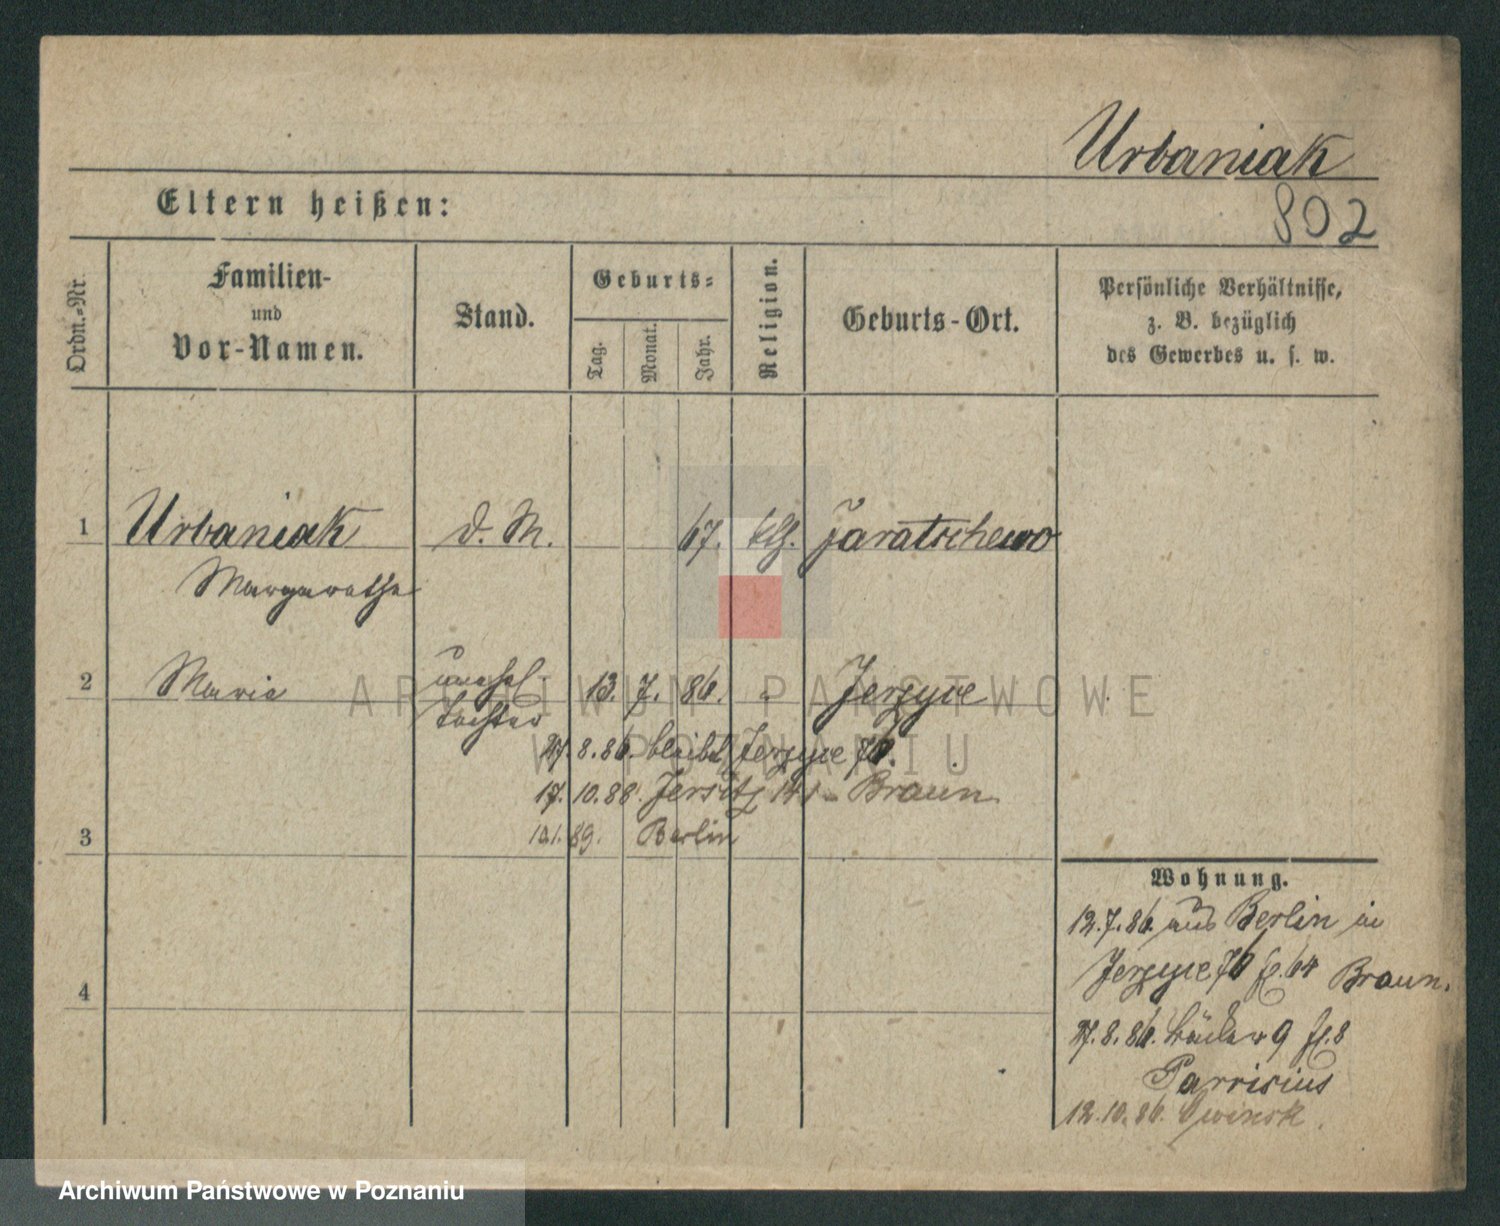 Urbaniak
802
Eltern heißen:
Ordn.-Nr.
Familien-
und
Vor-Namen.
Stand.
Geburts-
Tag.
Monat.
Jahr.
Religion.
Geburts-Ort.
Persönliche Verhältnisse,
z. B. bezüglich
des Gewerbes u. s. w.
1 Urbaniak d. M. 67. kth. Jaratschewo
Margarethe
2 Maria unehel. 13. 7. 86. " Jerzyce
Tochter
27.8.86. bleibt Jerzyce 70.
17.10.88. Jersitz 141 Braun
10.1.89. Berlin
3
4
Wohnung.
12.7.86. aus Berlin in
Jerzyce 70 64 Braun.
27.8.86. Bäcker 9 8
Parrisius
12.10.86. Owinsk.
ARCHIWUM PAŃSTWOWE
W POZNANIU
Archiwum Państwowe w Poznaniu